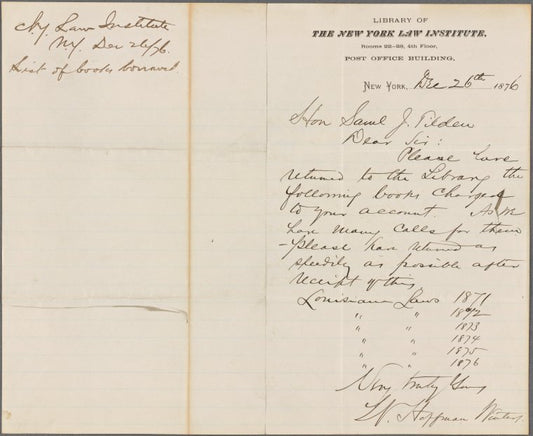 N.Y. Law Institute
N.Y. Dec 26/76.
List of books borrowed
LIBRARY OF
THE NEW YORK LAW INSTITUTE,
Rooms 22-28, 4th Floor,
POST OFFICE BUILDING,
NEW YORK, Dec 26th 1876
Hon Saml J. Tilden
Dear Sir:
Please have
returned to the Library the
following books charged
to your account. As we
have many calls for them
-please have returned as
speedily as possible after
receipt of this
Louisiana Laws 1871
" " 1872
" " 1873
" " 1874
" " 1875
" " 1876
Very truly Yours
Hoffman